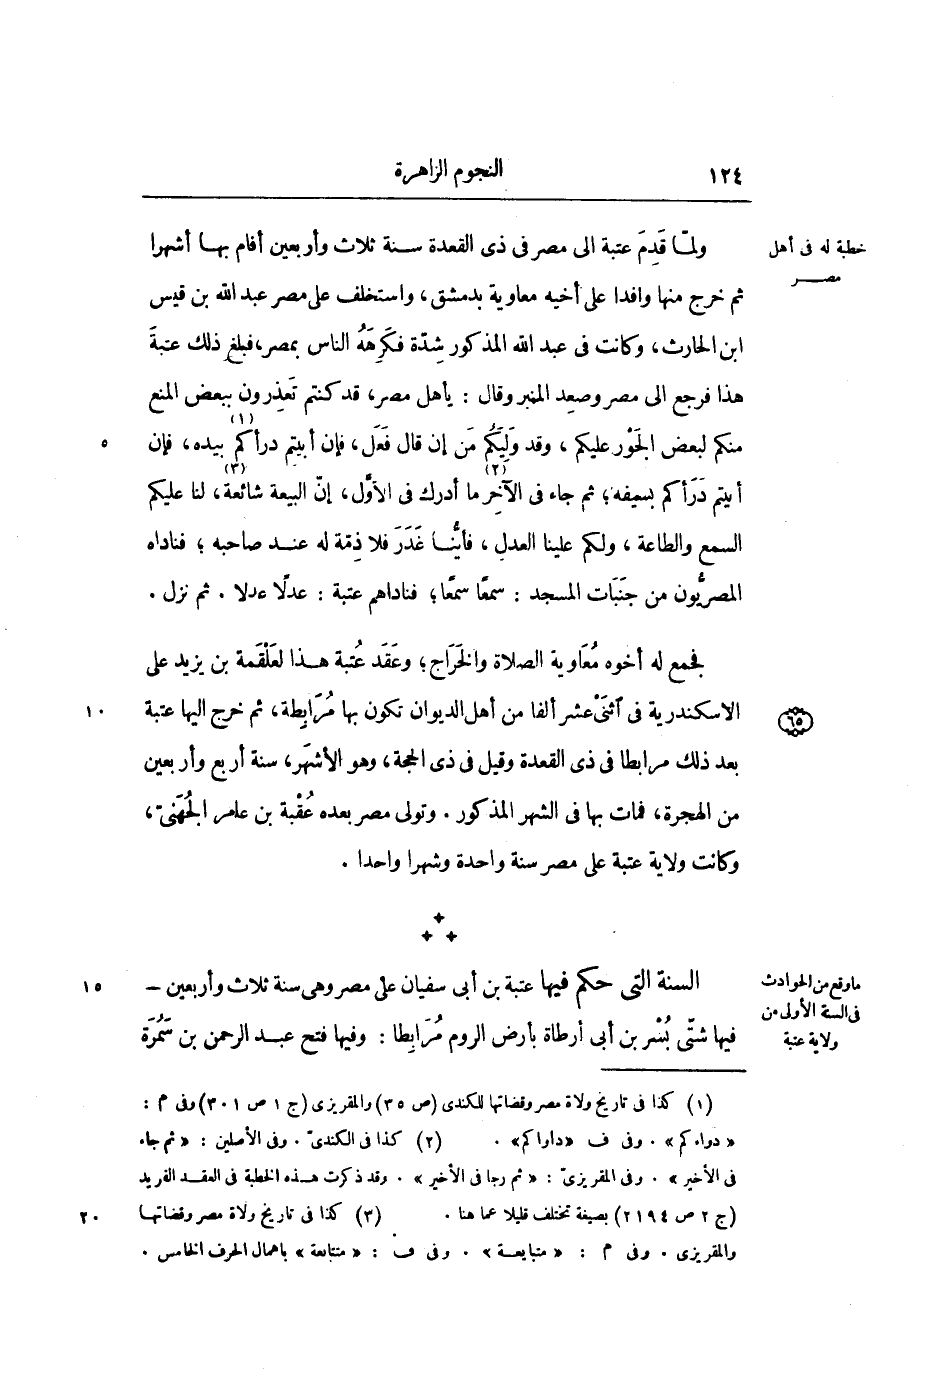 ١٢٤ النجوم الزاهرة
خطبة له فى أهل
مصر
ولمّا قَدِمَ عتبة الى مصر فى ذى القعدة سنة ثلاث وأربعين أقام بها أشهرا
ثم خرج منها وافدا على أخيه معاوية بدمشق، واستخلف على مصر عبد الله بن قيس
ابن الحارث، وكانت فى عبد الله المذكور شدّة فكَرِهَهُ الناس بمصر، فبلغ ذلك عتبةَ
هذا فرجع الى مصر وصعد المنبر وقال : يأهل مصر، قد كنتم تَعذِرون ببعض المنع
منكم لبعض الجَوْر عليكم ، وقد وَلِيَكُم مَن إن قال فَعَل، فإن أبيتم درأكم (١) بيده، فإن ٥
أبيتم دَرَأكم بسيفه؛ ثم جاء فى الآخِر (٢) ما أدرك فى الأوّل، إنّ البيعة شائعة (٣)، لنا عليكم
السمع والطاعة ، ولكم علينا العدل ، فأيُّنا غَدَرَ فلا ذِمّة له عند صاحبه ؛ فناداه
المصريُّون من جَنَبَات المسجد : سمعًا سمعًا؛ فناداهم عتبة : عدلًا عدلا . ثم نزل .
فجمع له أخوه مُعَاوية الصلاة والخَرَاج؛ وعَقَد عُتبة هذا لعَلْقَمة بن يزيد على
الاسكندرية فى آثنَىْ عشر ألفا من أهل الديوان تكون بها مُرَابِطة، ثم خرج اليها عتبة ١٠
٦٥
بعد ذلك مرابطا فى ذى القعدة وقيل فى ذى الحجة، وهو الأشهر، سنة أربع وأربعين
من الهجرة، فمات بها فى الشهر المذكور . وتولى مصر بعده عُقْبة بن عامر الجُهَنىّ،
وكانت ولاية عتبة على مصر سنة واحدة وشهرا واحدا .
ما وقع من الحوادث
فى السنة الأولى من
ولاية عتبة
السنة التى حكم فيها عتبة بن أبى سفيان على مصر وهى سنة ثلاث وأربعين – ١٥
فيها شتّى بُسْر بن أبى أرطاة بأرض الروم مُرَابِطا : وفيها فتح عبد الرحمن بن سَمُرَة
(١) كذا فى تاريخ ولاة مصر وقضاتها للكندى (ص ٣٥) والمقريزى (ج ١ ص ٣٠١) وفى م :
« دواءكم » . وفى ف «داواكم» . (٢) كذا فى الكندىّ . وفى الأصلين : « ثم جاء
فى الأخير » . وفى المقريزىّ : « ثم رجا فى الأخير » . وقد ذكرت هذه الخطبة فى العقد الفريد
(ج ٢ ص ٢١٩٤) بصيغة تختلف قليلا عما هنا . (٣) كذا فى تاريخ ولاة مصر وقضاتها ٢٠
والمقريزى . وفى م : « متبايعة » . وفى ف : « متتابعة » باهمال الحرف الخامس .